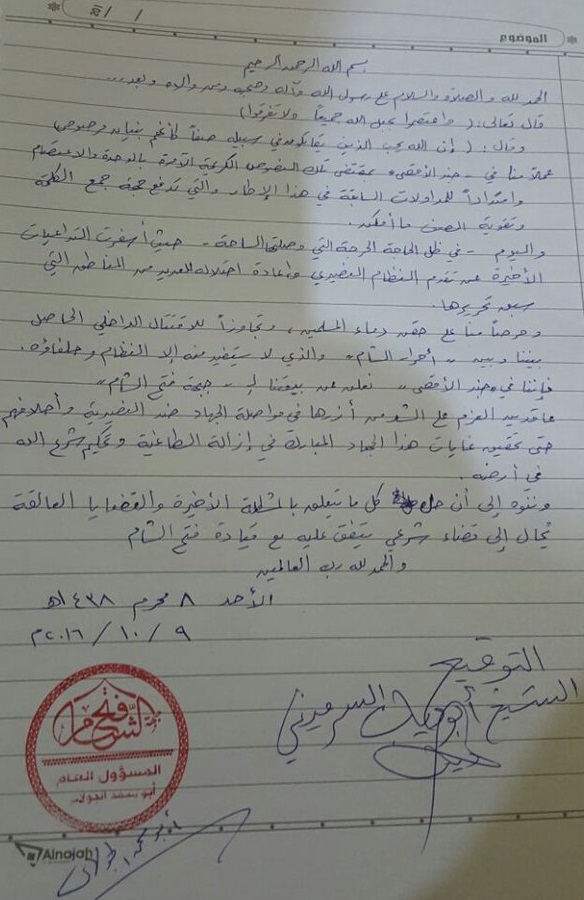 الموضوع
بسم الله الرحمن الرحيم
الحمد لله والصلاة والسلام على رسول الله وآله وصحبه ومن والاه وبعد...
قال تعالى: (واعتصموا بحبل الله جميعاً ولا تفرقوا)
وقال: (إن الله يحب الذين يقاتلون في سبيله صفاً كأنهم بنيان مرصوص)
عملاً منا في - جند الأقصى - بمقتضى تلك النصوص الكريمة الآمرة بالوحدة والاعتصام
وامتداداً للمحاولات السابقة في هذا الإطار والتي تدفع جمع الكلمة
وتقوية الصف ما أمكن.
واليوم - في ظل الحالة الحرجة التي وصلتها الساحة - حيث أسفرت التداعيات
الأخيرة عن تقدم النظام النصيري وإعادة احتلاله للعديد من المناطق التي
سبق تحريرها.
وحرصاً منا على حقن دماء المسلمين، وتجاوزاً للاقتتال الداخلي الحاصل
بيننا وبين - أحرار الشام - والذي لا يستفيد منه إلا النظام وحلفاؤه.
فإننا في - جند الأقصى - نعلن عن بيعتنا لـ - جبهة فتح الشام -
عاقدين العزم على الشد من أزرها في مواصلة الجهاد ضد النصيرية وأحلافهم
حتى تحقيق غايات هذا الجهاد المبارك في إزالة الطاغية وتحكيم شرع الله
في أرضه.
وننوّه إلى أن حل كل ما يتعلق بالمشكلة الأخيرة والقضايا العالقة
يُحال إلى قضاء شرعي يتفق عليه مع قيادة فتح الشام
والحمد لله رب العالمين
الأحد ٨ محرم ١٤٣٨هـ
٩ / ١٠ / ٢٠١٦م
التوقيع
الشيخ أبو دياب السرميني
فتح الشام
المسؤول العام
أبو محمد الجولاني
أبو محمد الجولاني
Alnojah